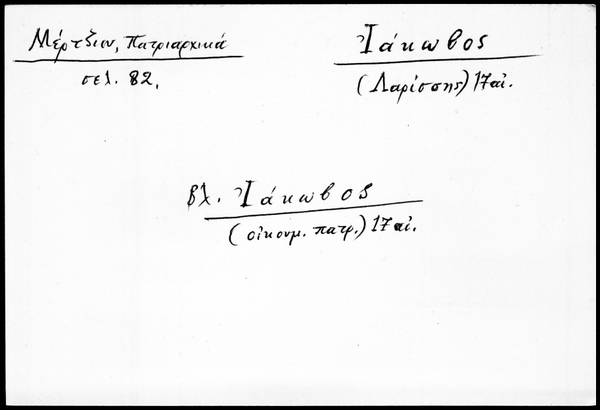 Μέρτζιου, Πατριαρχικά
σελ. 82.
Ἰάκωβος
(Λαρίσσης) 17 αἰ.
βλ. Ἰάκωβος
(οἰκουμ. πατρ.) 17 αἰ.